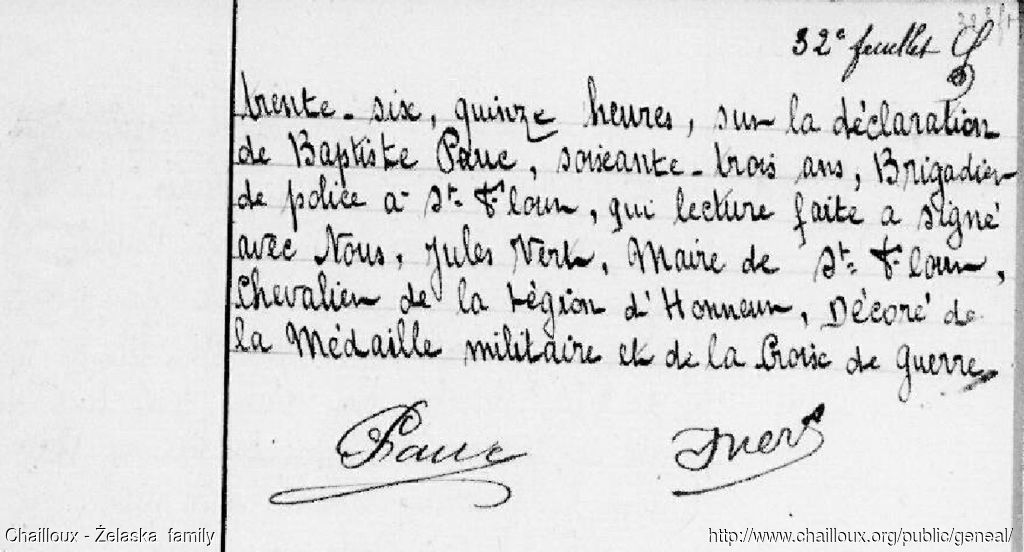 32e feuillet
trente-six, quinze heures, sur la déclaration
de Baptiste Pauc, soixante-trois ans, Brigadier
de police à St-Flour, qui lecture faite a signé
avec Nous, Jules Vert, Maire de St-Flour,
Chevalier de la Légion d'Honneur, Décoré de
la Médaille militaire et de la Croix de guerre
Pauc JVert
Chailloux - Želaska family
http://www.chailloux.org/public/geneal/